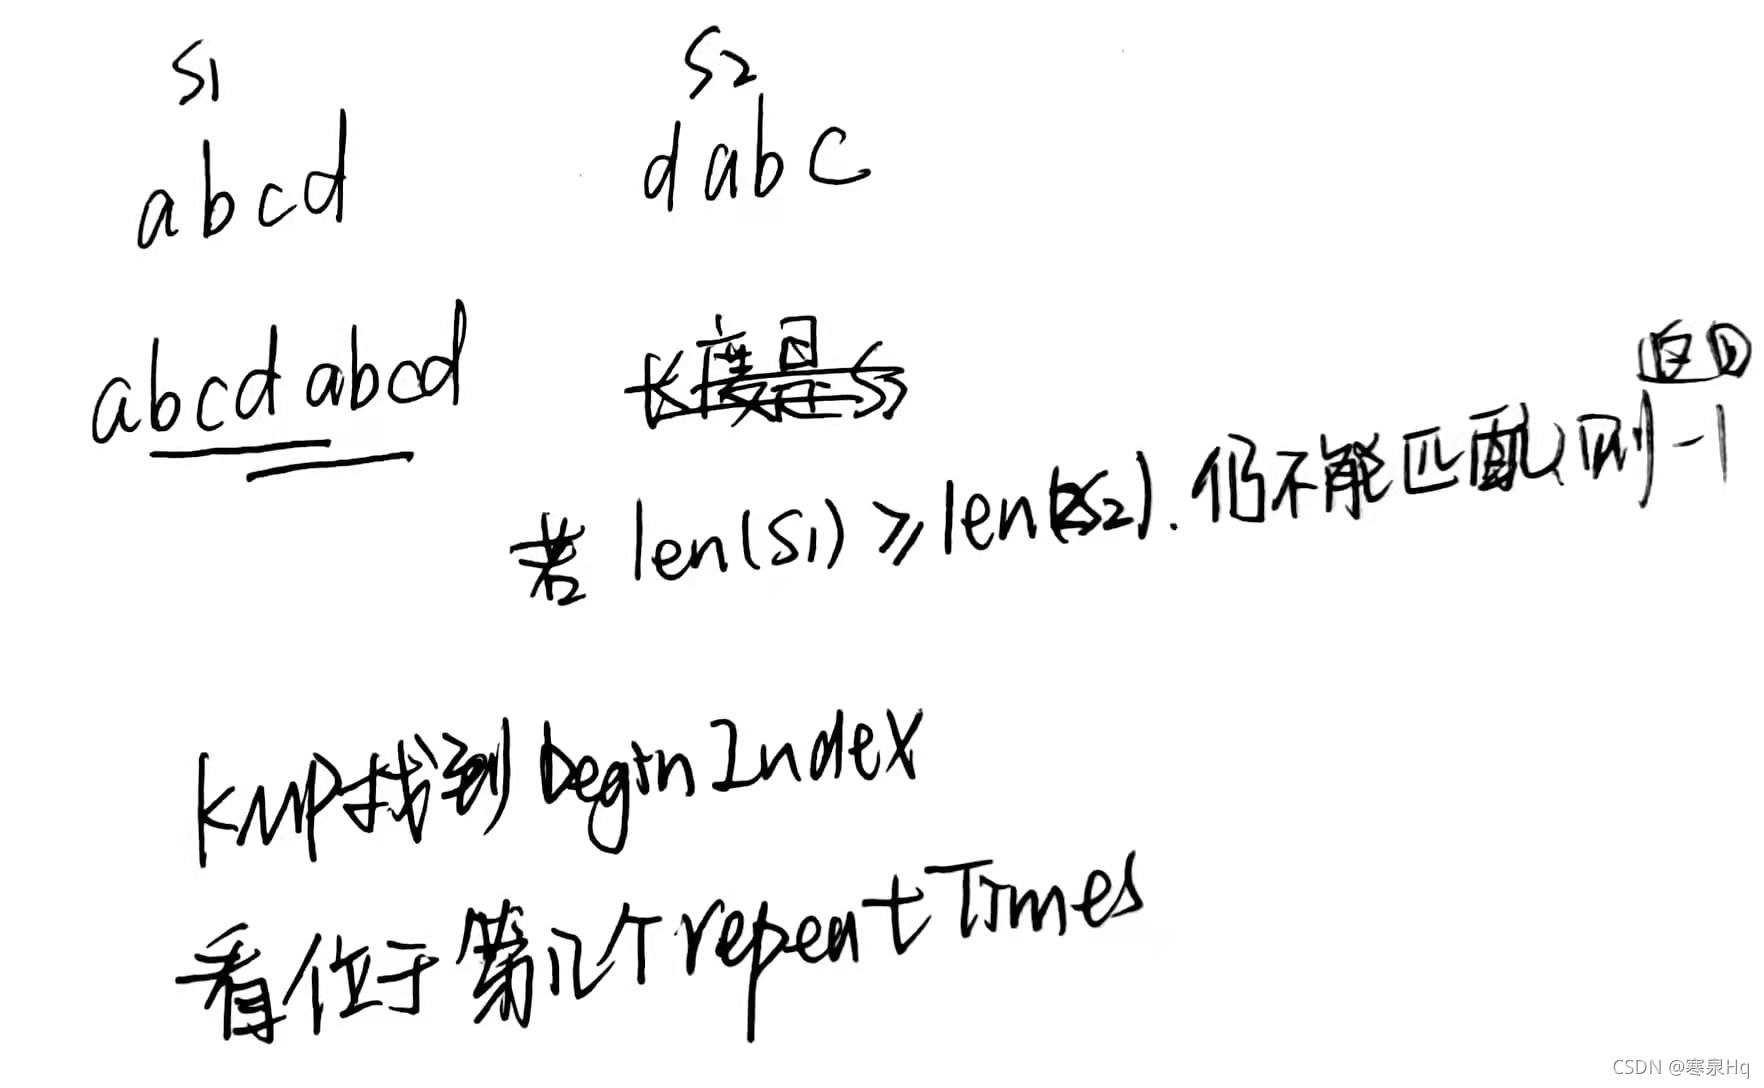 S1 S2
abcd dabc
abcdabcd 长度是S
返回
若 len(S1) ≥ len(S2). 仍不能匹配,则 -1
KMP找到 beginIndex
看位于第几个repeatTimes
CSDN @寒泉Hq